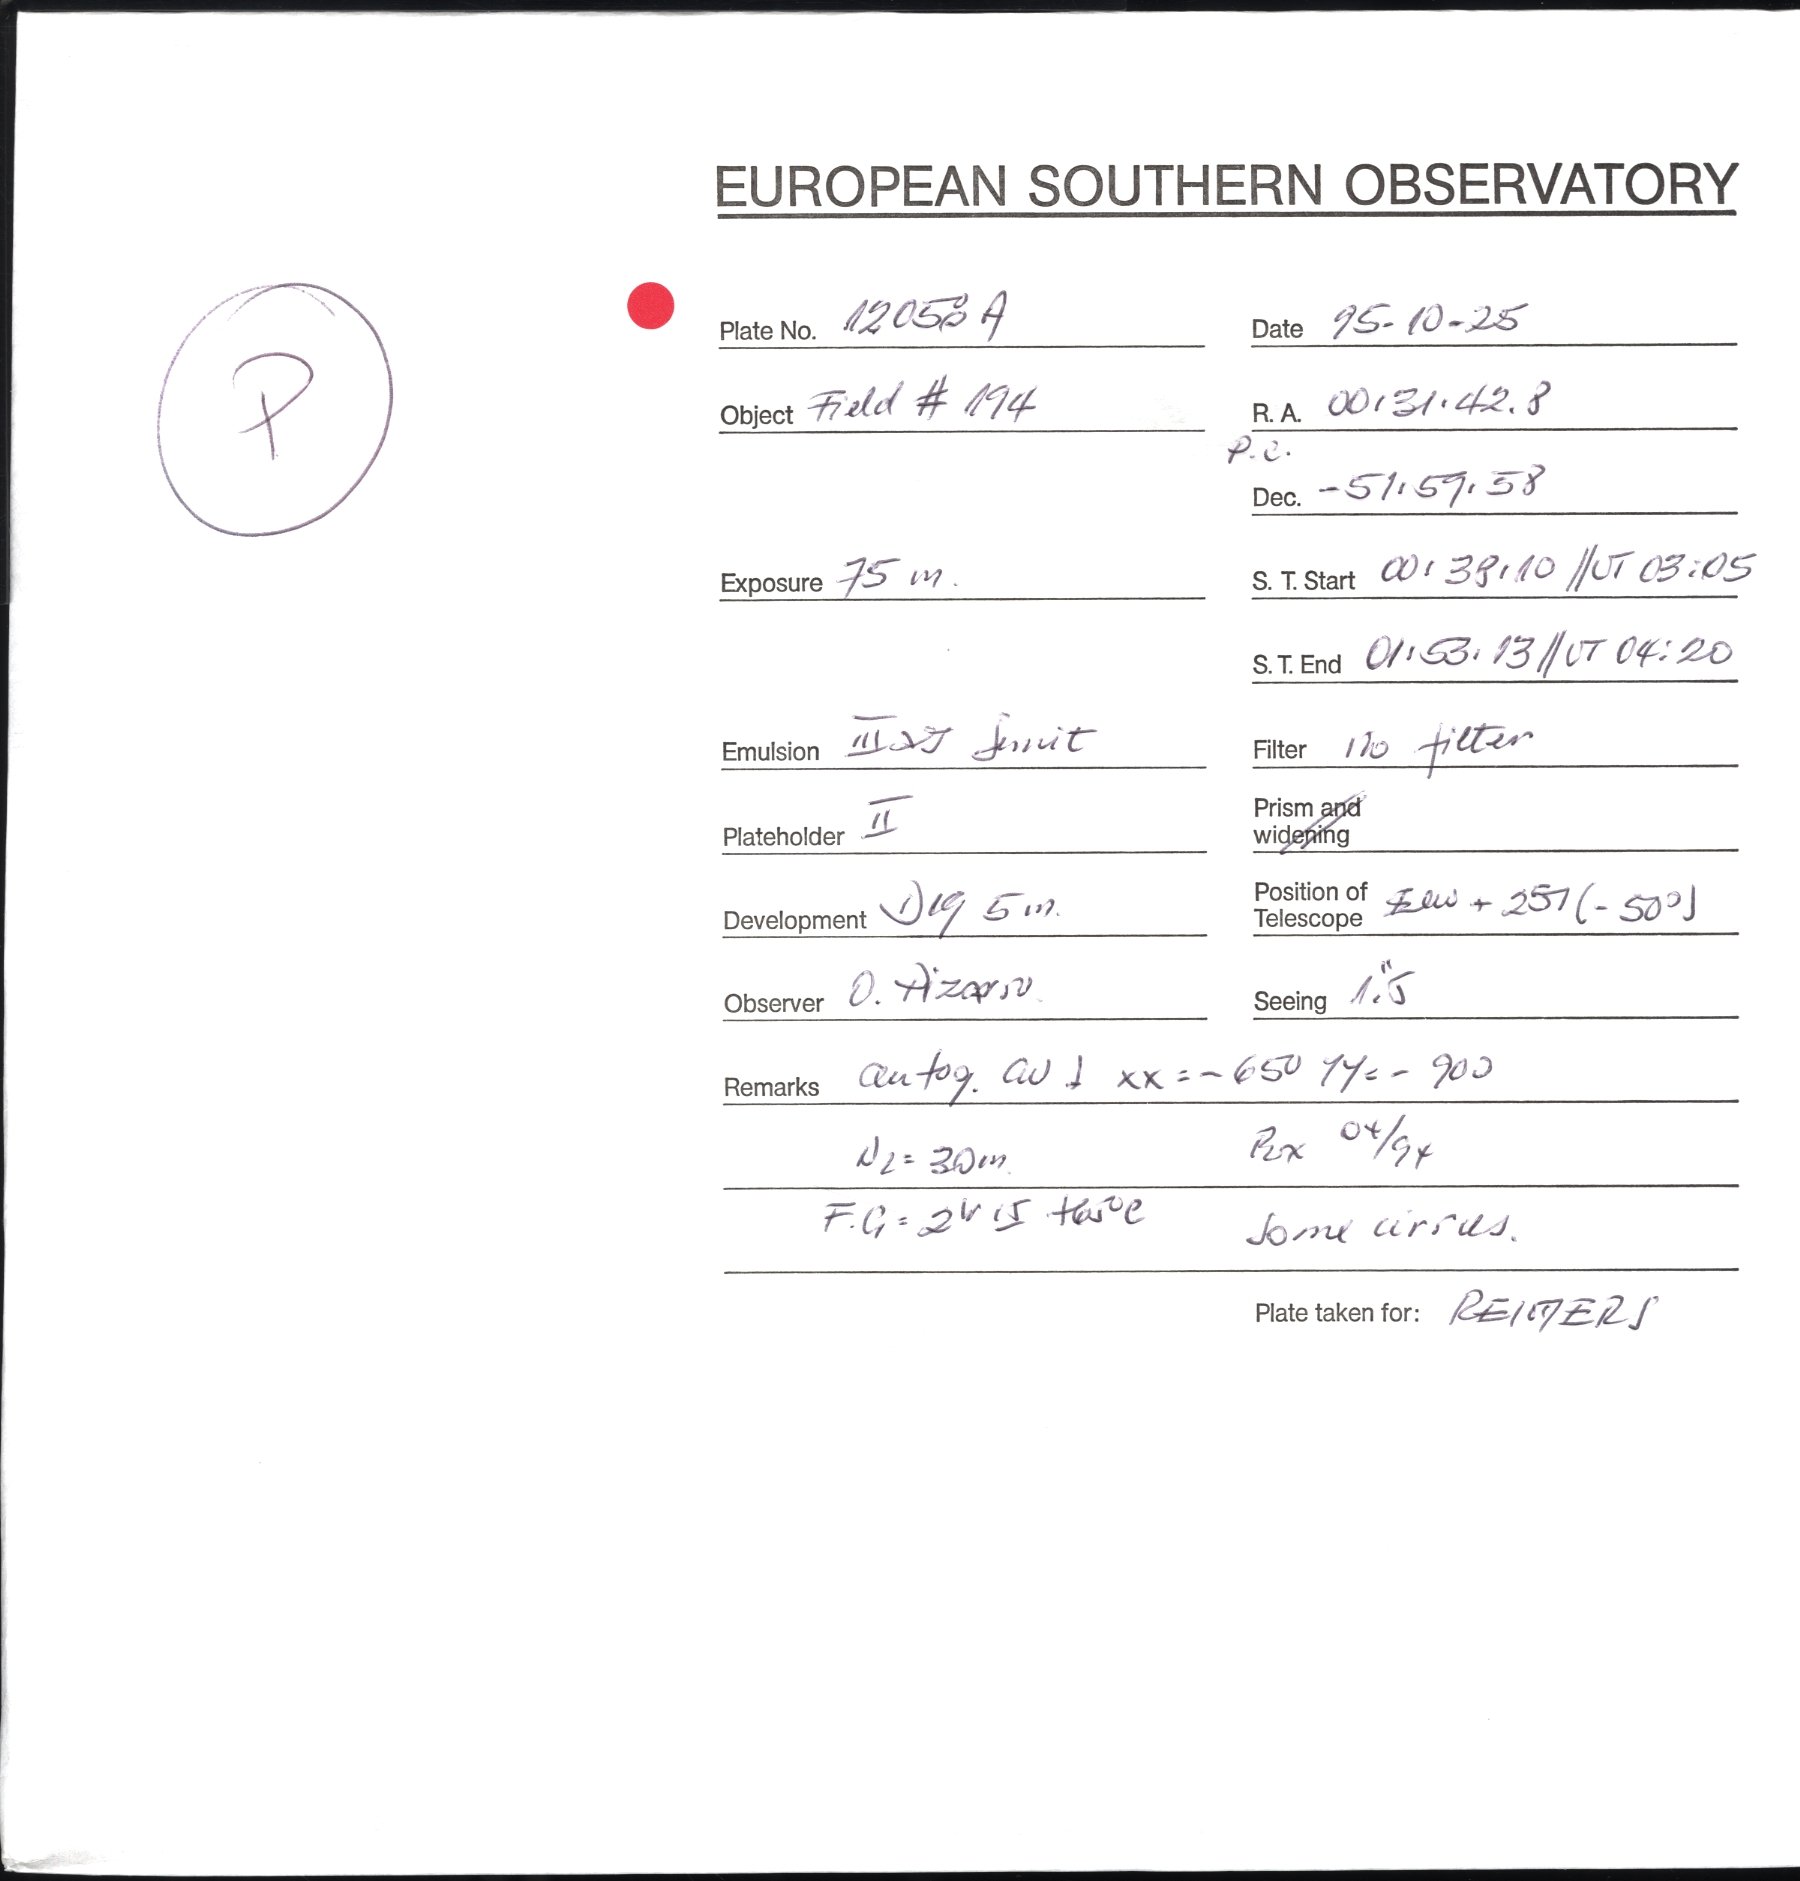 EUROPEAN SOUTHERN OBSERVATORY
P
Plate No. 12058 A Date 95-10-25
Object Field # 194 R. A. 00:31:42.8
P.C.
Dec. -51:59:58
Exposure 75 m. S. T. Start 00:38:10 // UT 03:05
S. T. End 01:53:13 // UT 04:20
Emulsion Filter no filter
Plateholder II Prism and widening
Development D19 5 m. Position of Telescope + 257 (-50°)
Observer O. Pizarro Seeing 1."5
Remarks autog. xx = -650 YY = - 900
N2 = 30m. 04/94
F.G = 2h 15 +65°C Some cirrus.
Plate taken for: REIMERS